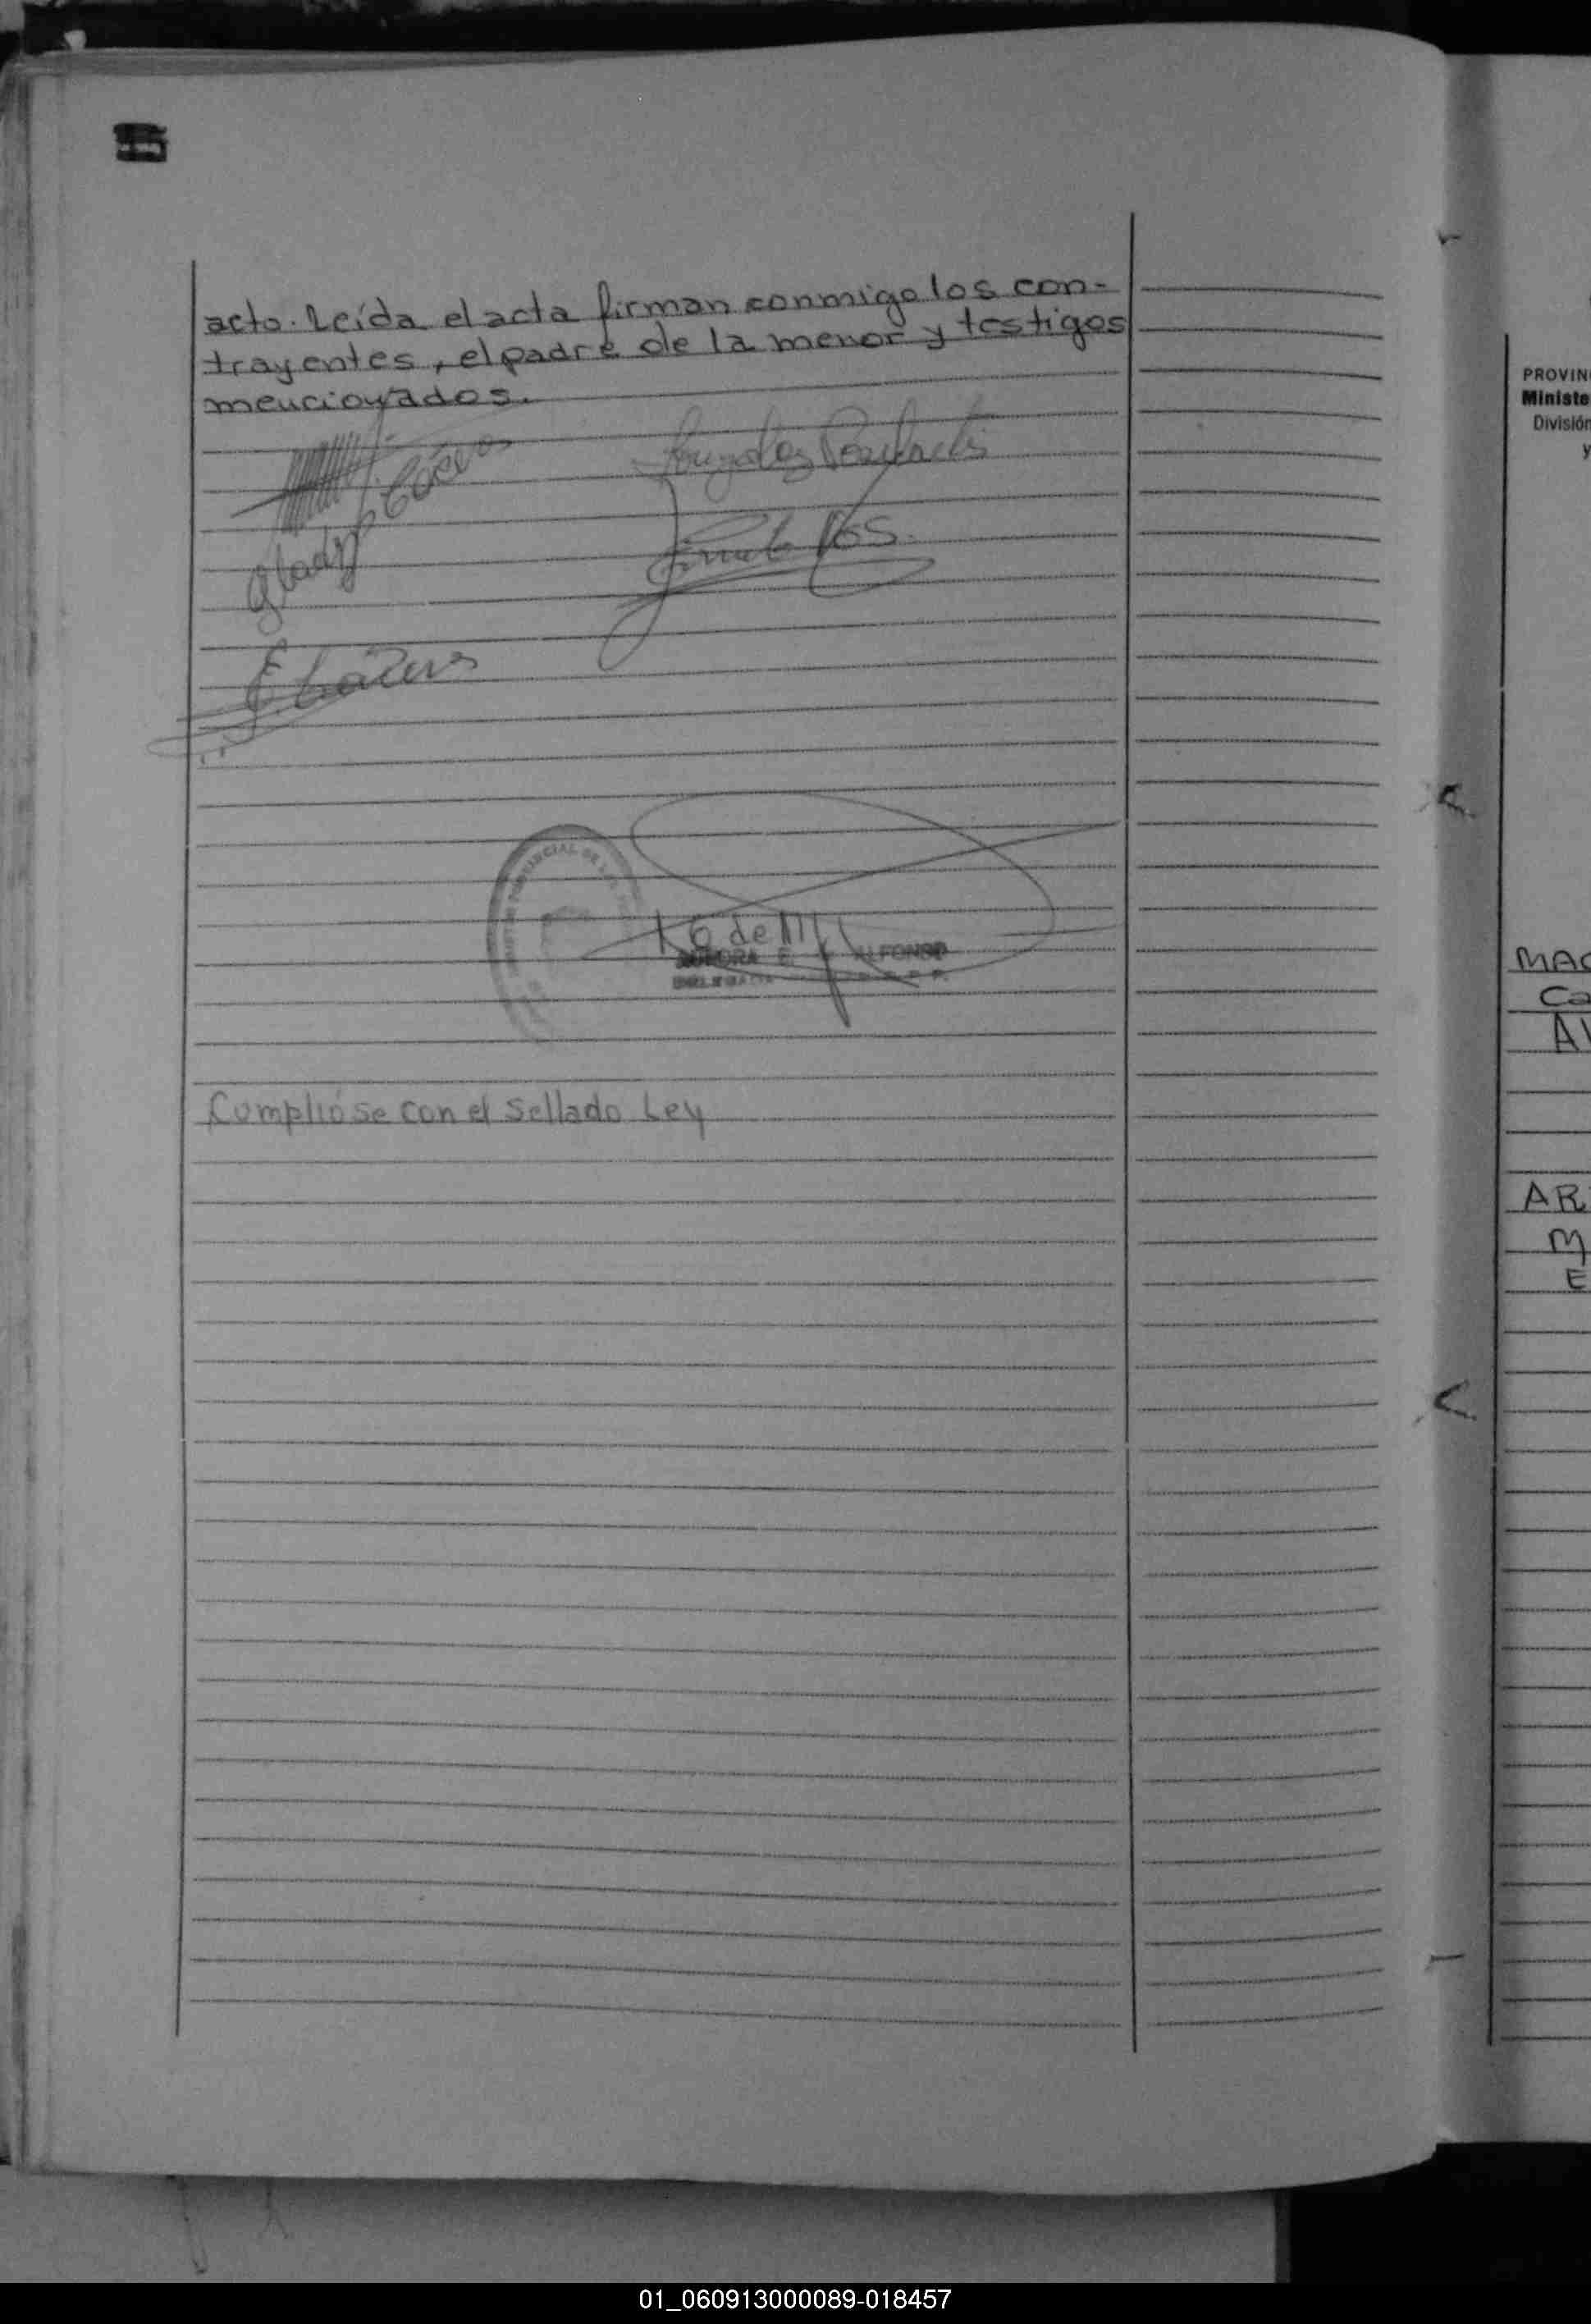 acto. Leída el acta firman conmigo los con-
trayentes, el padre de la menor y testigos
mencionados.
Gladys
16 de
AURORA E. ALFONSO
Cumplióse con el sellado Ley
PROVIN
Ministe
División
y
MAC
Ca
AR
M
E
01_060913000089-018457